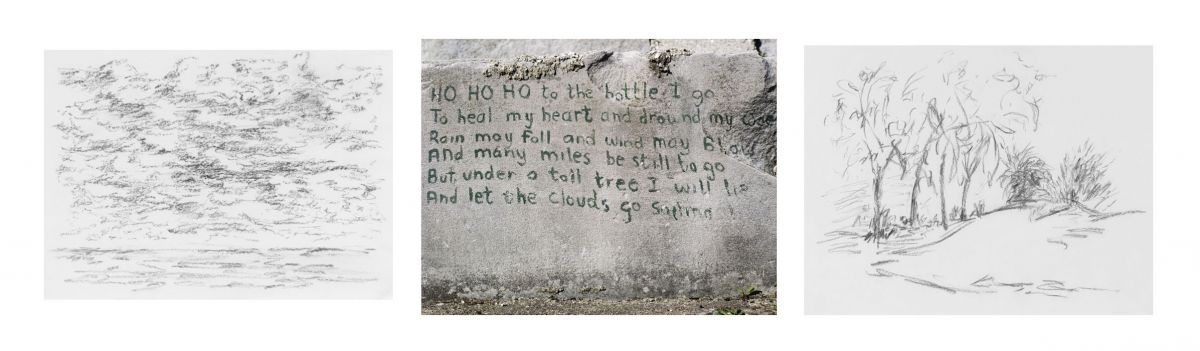 HO HO HO to the bottle I go
To heal my heart and dround my woe
Rain may fall and wind may Blow
And many miles be still to go
But under a tall tree I will lie
And let the clouds go